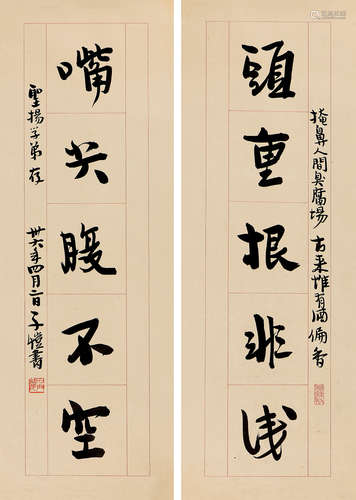 頭重根非浅
掩鼻人間臭腐場 古来惟有酒偏香
嘴尖腹不空
聖揚学弟存 卅六年四月二日子愷書